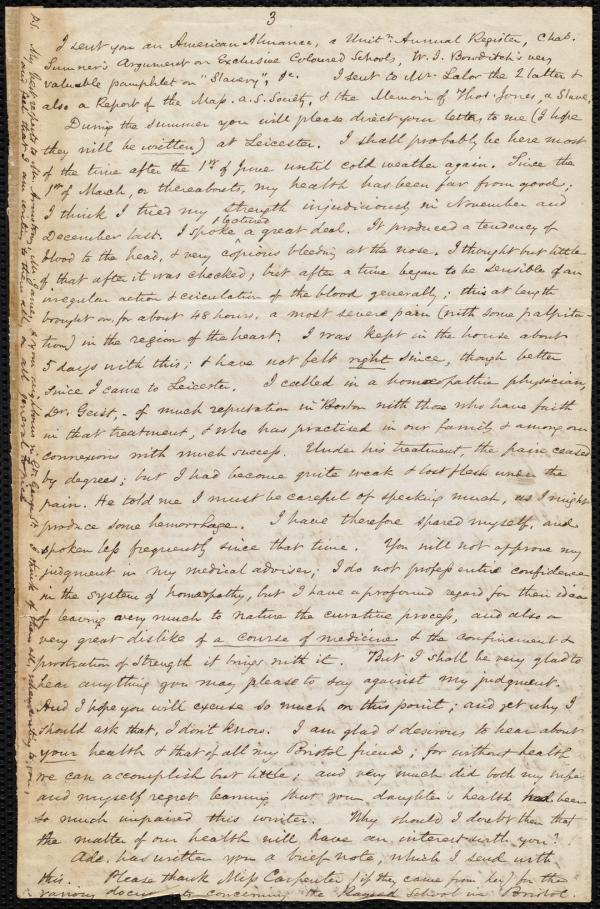 3
I sent you an American Almanac, a Unitn. Annual Register, Chas.
Sumner's Argument on Exclusive Coloured Schools, W. I. Bowditch's very
valuable pamphlet on "Slavery", &c. I sent to Mr. Lalor the 2 latter &
also a Report of the Mass. A. S. Society, & the Memoir of Thos. Jones, a Slave.
During the summer you will please direct your letters to me (I hope
they will be written) at Leicester. I shall probably be here most
of the time after the 1st of June until cold weather again. Since the
1st of March, or thereabouts, my health has been far from good;
I think I tried my strength injudiciously in November and
December last. I spoke & lectured a great deal. It produced a tendency of
blood to the head, & very copious bleeding at the nose. I thought but little
of that after it was checked; but after a time began to be sensible of an
irregular action & circulation of the blood generally; this at length
brought on, for about 48 hours, a most severe pain (with some palpita-
tion) in the region of the heart. I was kept in the house about
5 days with this; & have not felt right since, though better
since I came to Leicester. I called in a homœopathic physician,
Dr. Geist, - of much reputation in Boston with those who have faith
in that treatment, & who has practised in our family & among our
connexions with much success. Under his treatment, the pain ceased
by degrees; but I had become quite weak & lost flesh under the
pain. He told me I must be careful of speaking much, as I might
produce some hemorrhage. I have therefore spared myself, and
spoken less frequently since that time. You will not approve my
judgment in my medical adviser; I do not profess entire confidence
in the system of homœopathy, but I have a profound regard for their idea
of leaving very much to nature the curative process, and also a
very great dislike of a course of medicine & the confinement &
prostration of strength it brings with it. But I shall be very glad to
hear anything you may please to say against my judgment.
And I hope you will excuse so much on this point; and yet why I
should ask that, I don't know. I am glad & desirous to hear about
your health & that of all my Bristol friends; for without health
we can accomplish but little; and very much did both my wife
and myself regret learning that your daughter's health had been
so much impaired this winter. Why should I doubt then that
the matter of our health will have an interest with you?
Ade. has written you a brief note, which I send with
this. Please thank Miss Carpenter (if they came from her) for the
various documents concerning the Ragged School in Bristol.
P.S. My best respects to Mr. Armstrong, Mr. James, & your neighbours in Gt. George St. I think of them all, when writing to you,
and feel that I am writing to them all in all general topics